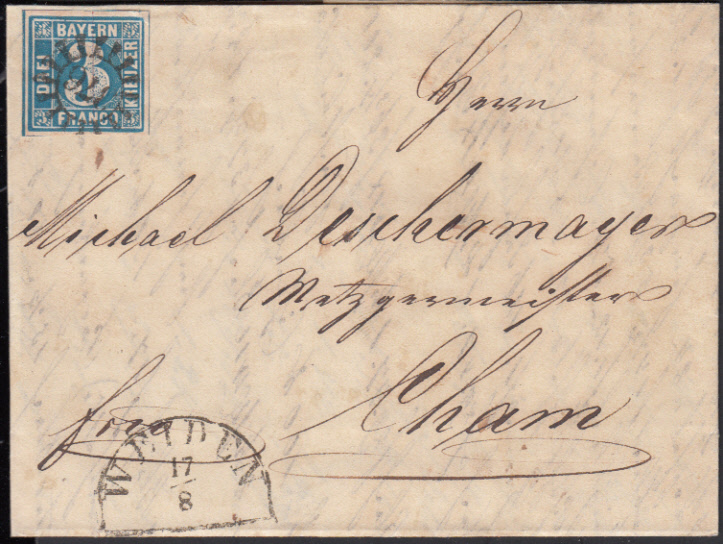 BAYERN
DREI 3 KREUZER
FRANCO
Herrn
Michael Deschermayer
Metzgermeister
Cham
WEIDEN
17
8